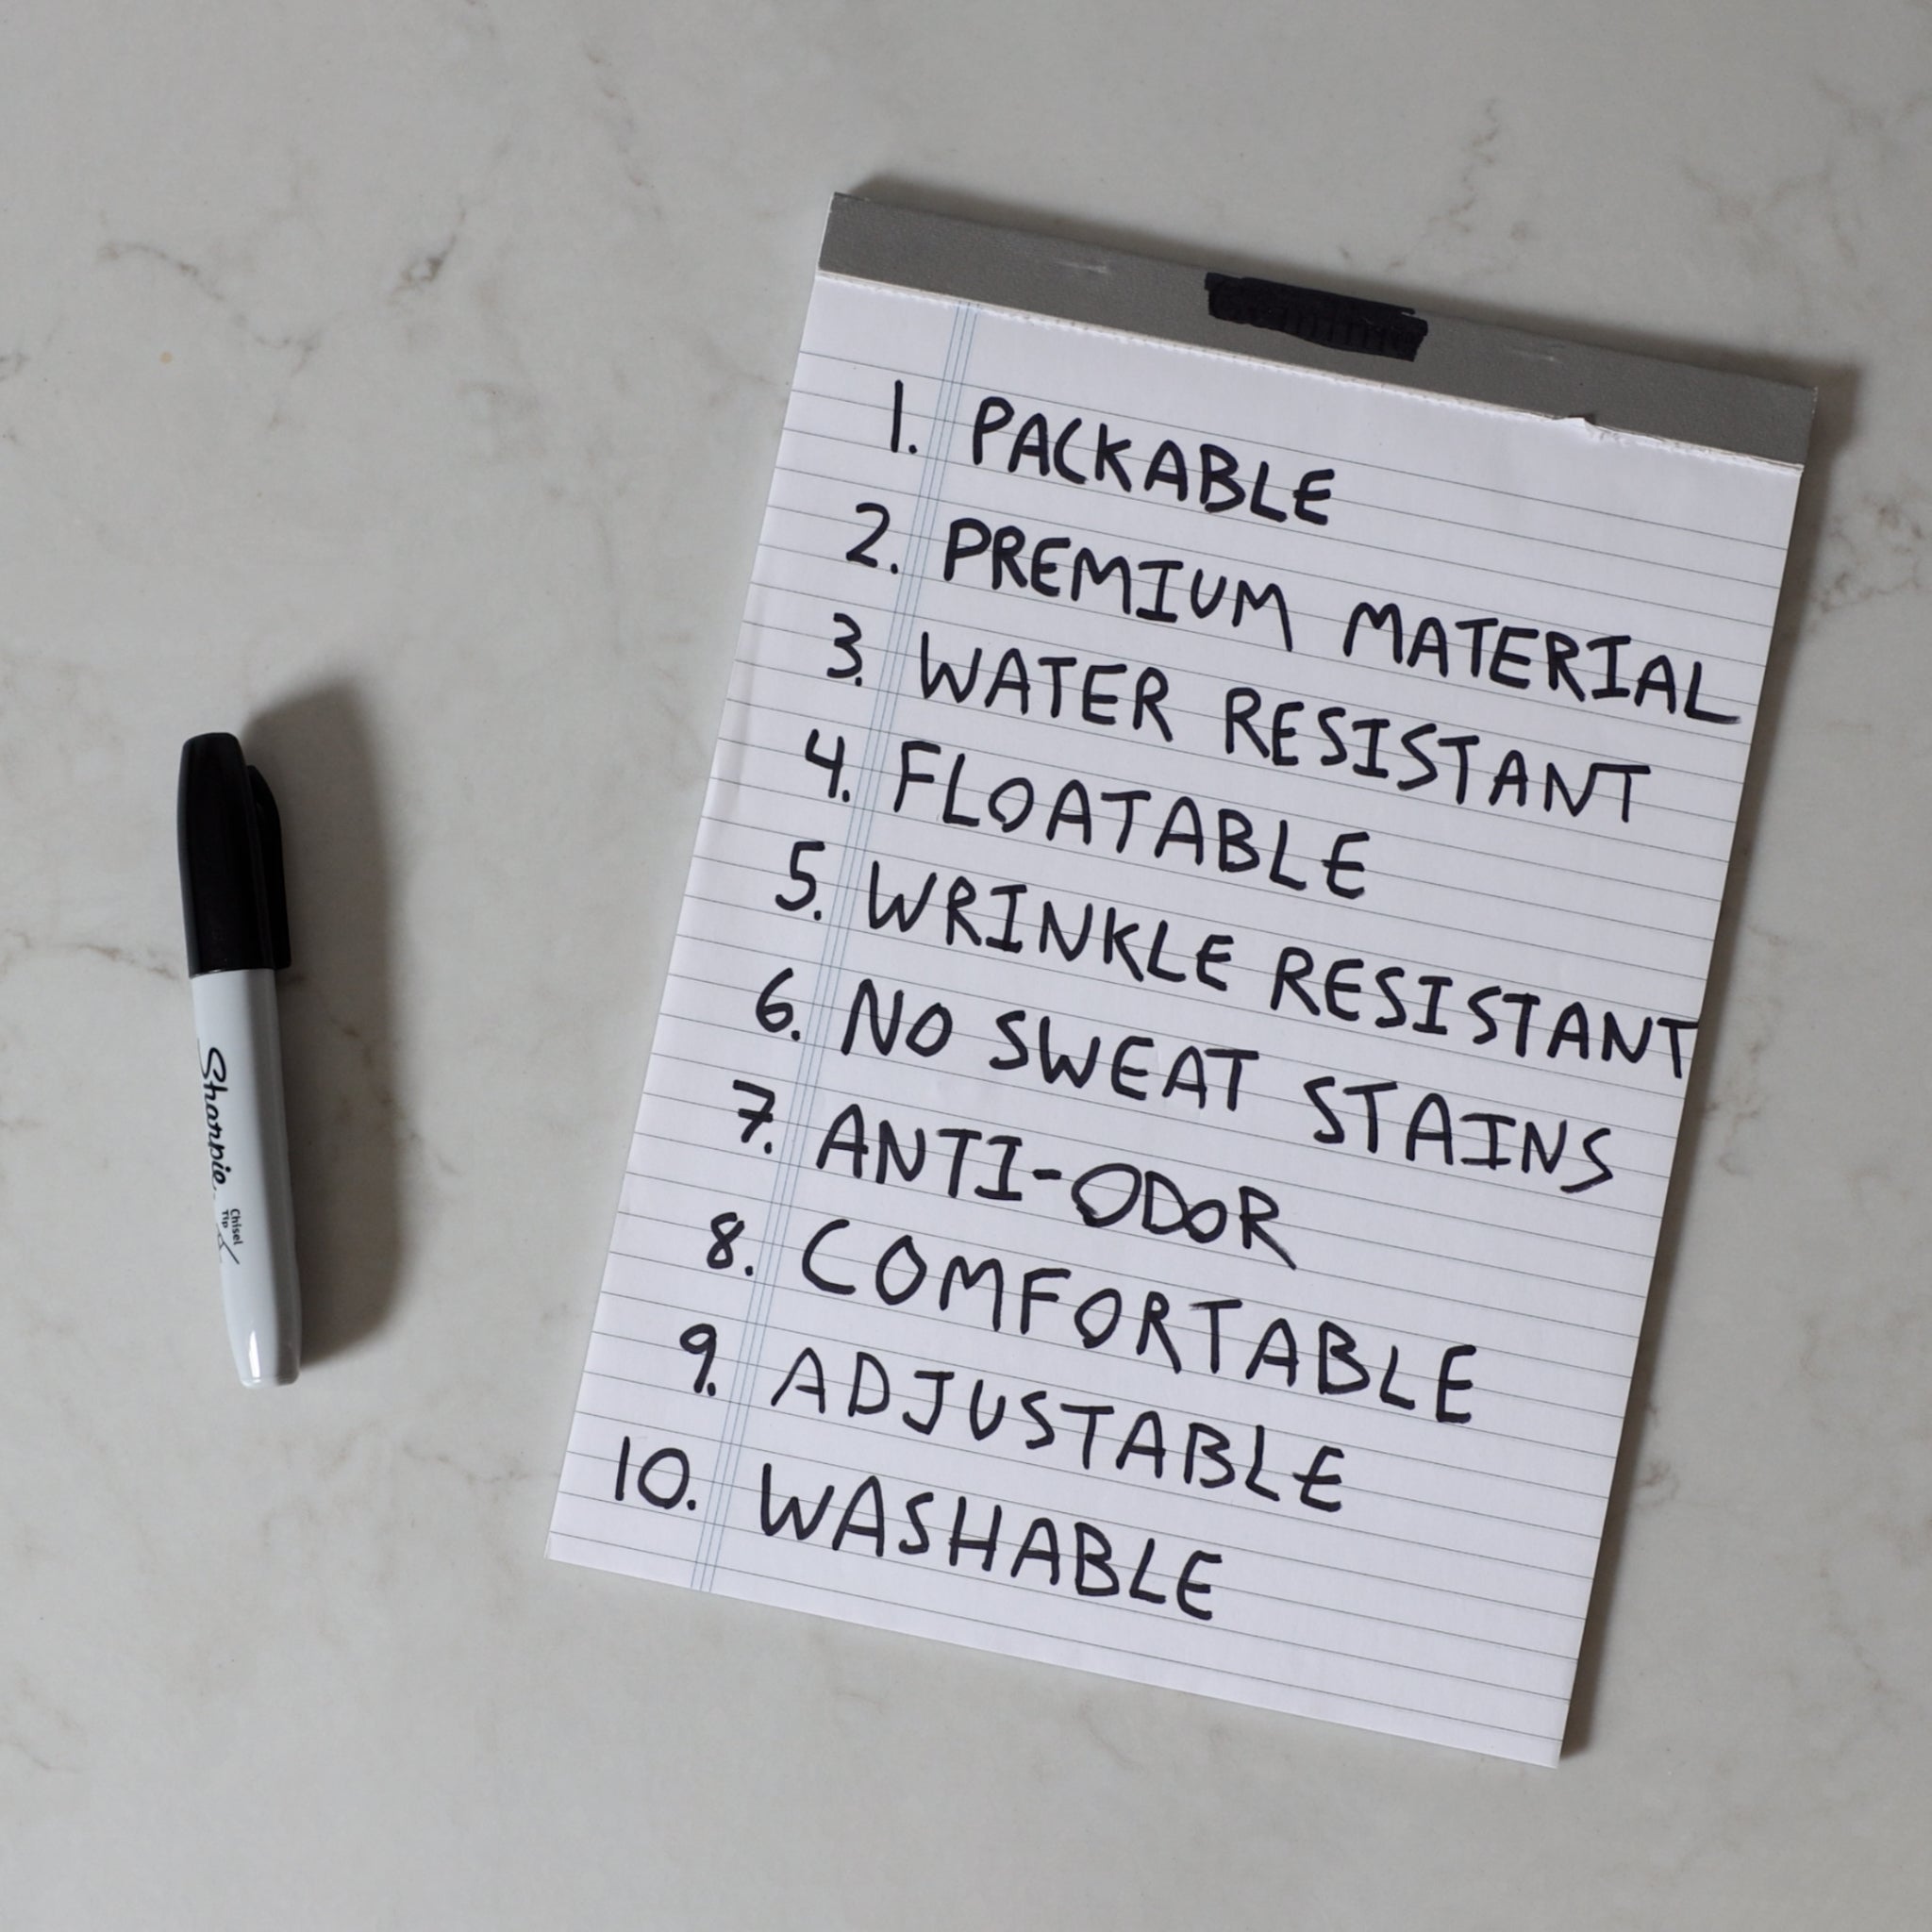 1. PACKABLE
2. PREMIUM MATERIAL
3. WATER RESISTANT
4. FLOATABLE
5. WRINKLE RESISTANT
6. NO SWEAT STAINS
7. ANTI-ODOR
8. COMFORTABLE
9. ADJUSTABLE
10. WASHABLE
Sharpie.
Chisel
Tip